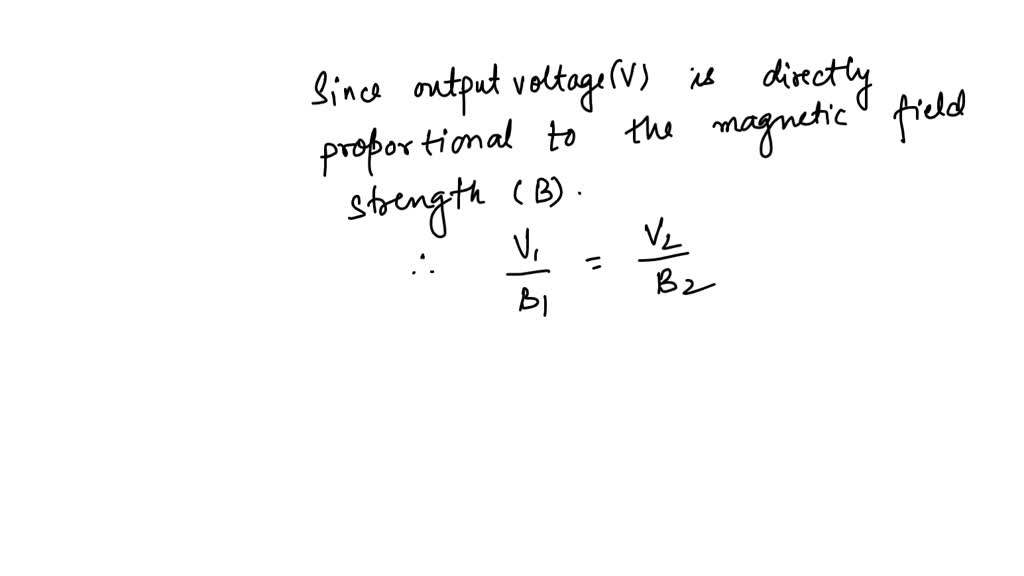 Since output voltage(V) is directly
proportional to the magnetic field
strength (B).
∴ V₁/B₁ = V₂/B₂